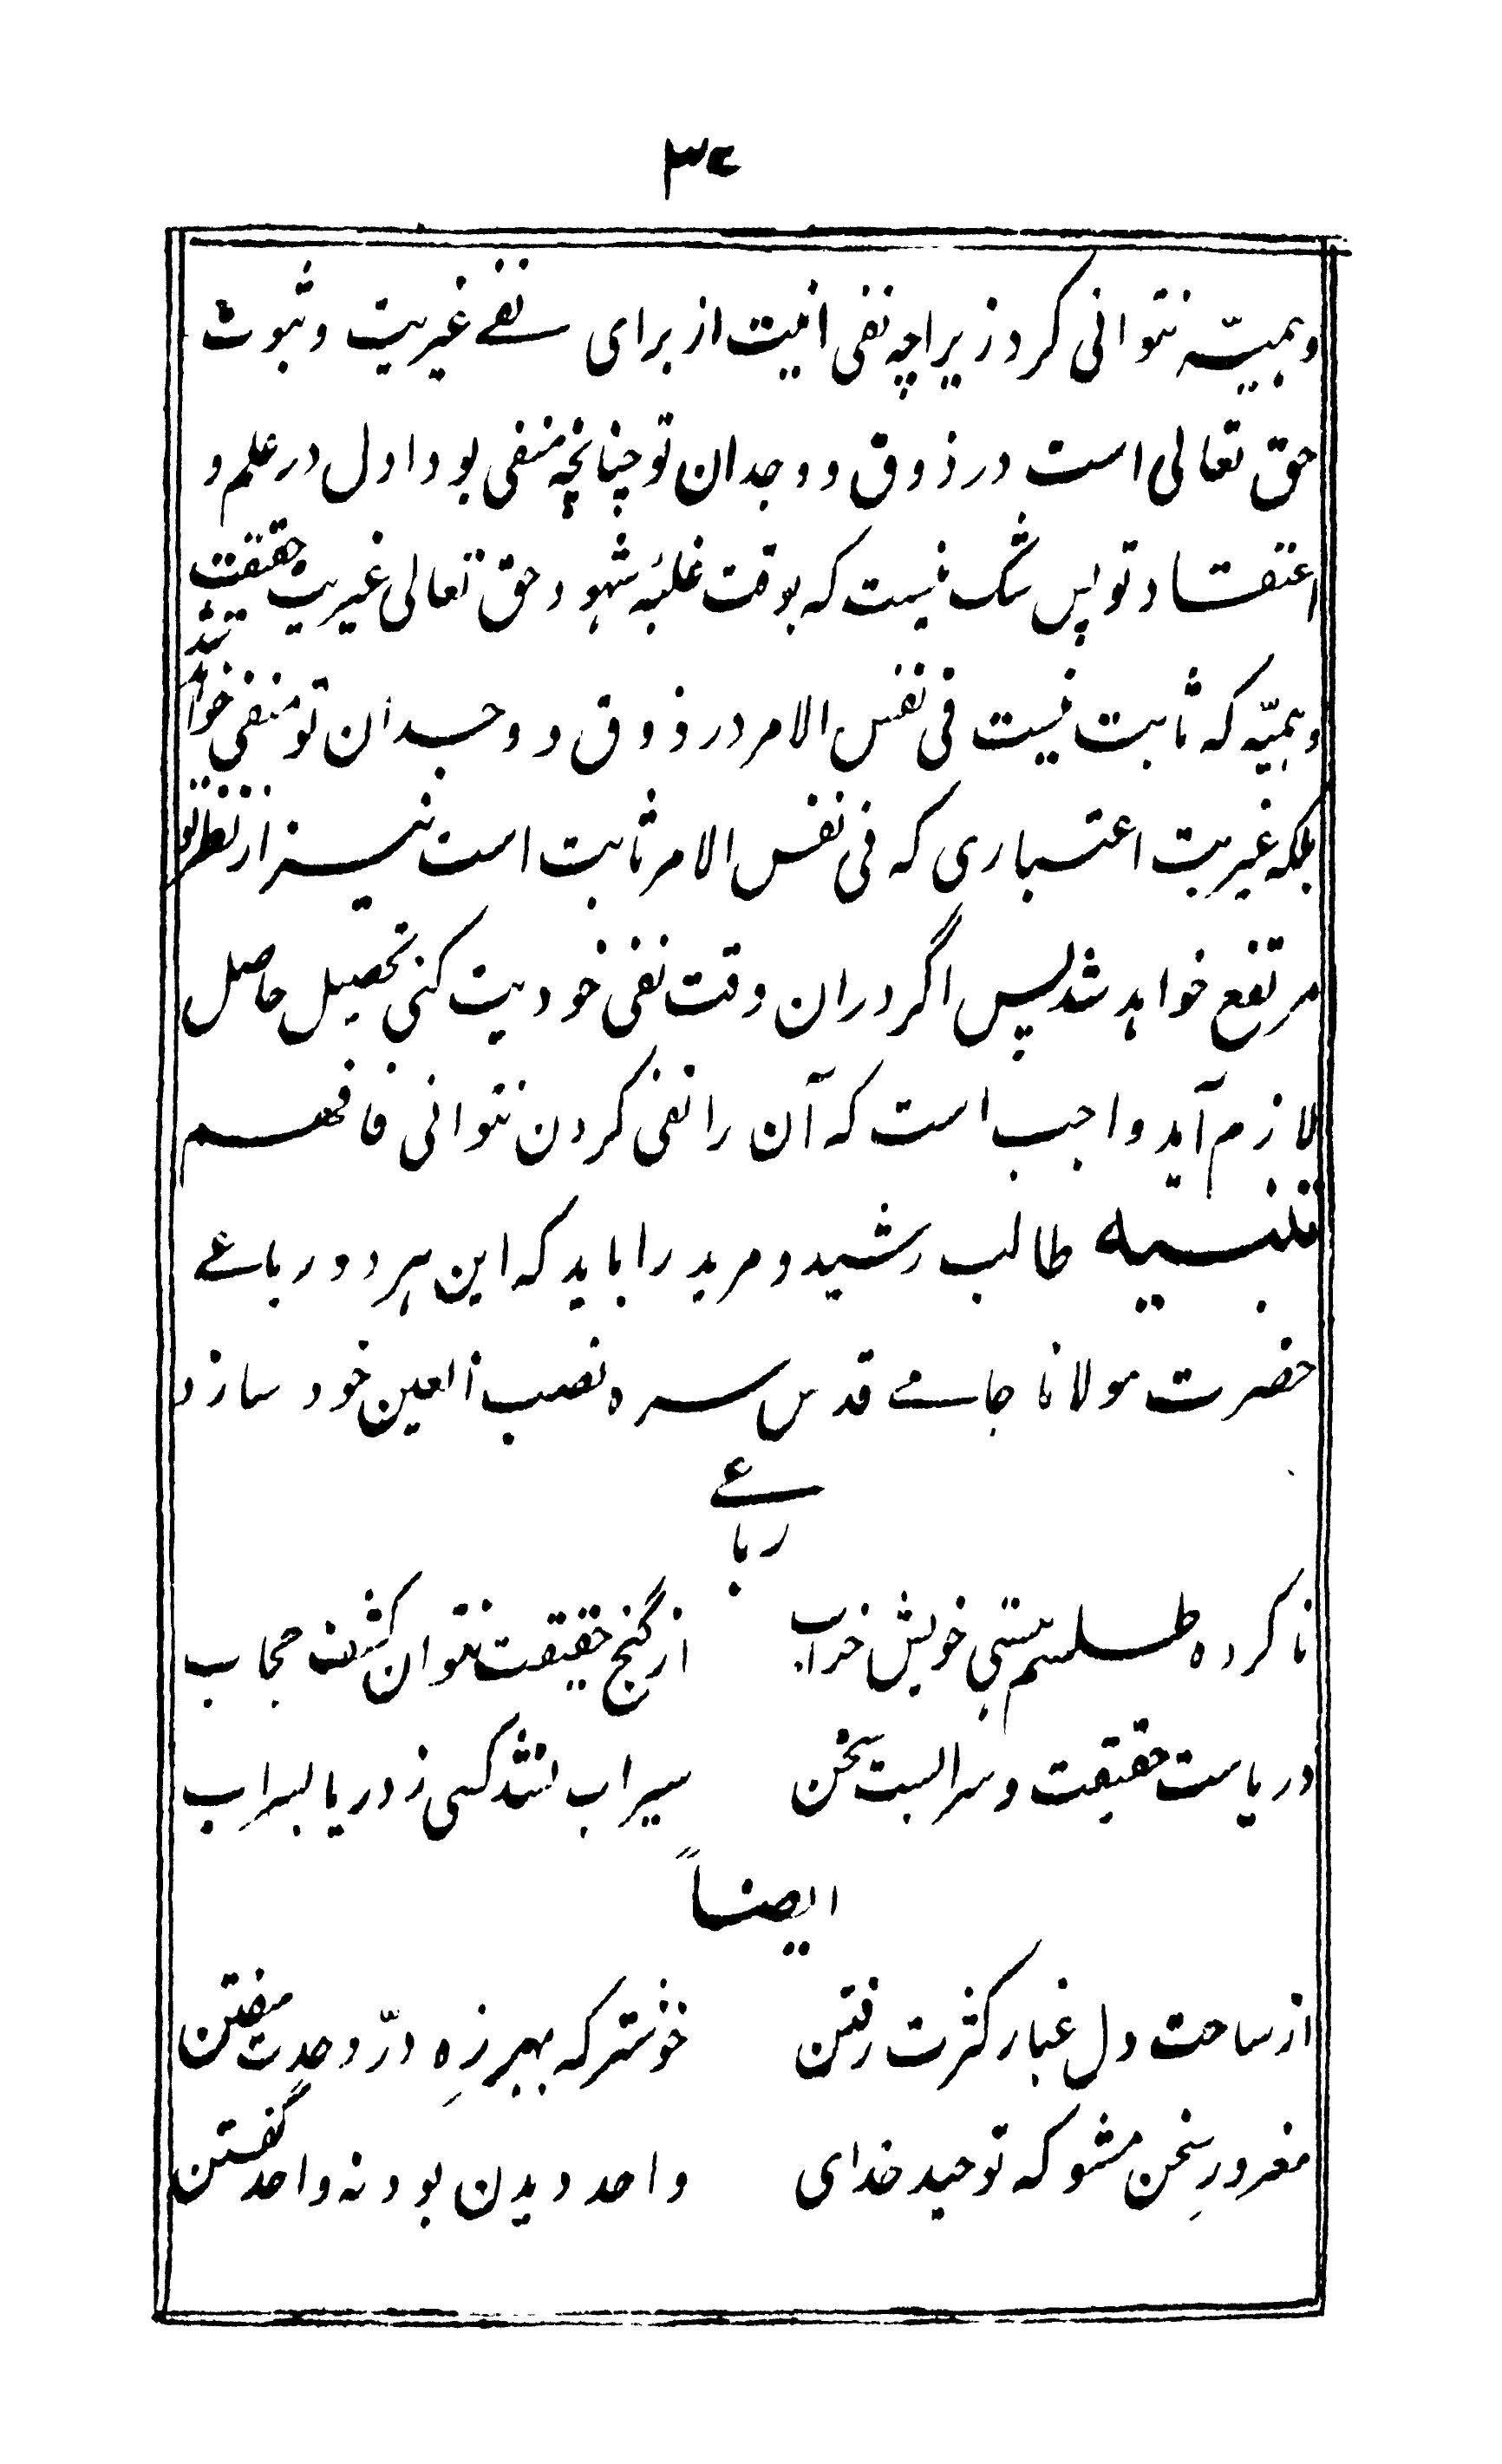 ۳۴
وہمیّہ نتوانی کرد زیراچہ نفی انیت از برای نفے غیریت و ثبوت
حق تعالی است در ذوق و وجدان تو چنانچہ منفی بود اول در علم و
اعتقاد تو پس شک نیست کہ بوقت غلبۂ شہود حق تعالی غیریت حقیقت
وہمیّہ کہ ثابت نیست فی نفس الامر در ذوق و وجدان تو منفی خواہد شد
بلکہ غیریت اعتباری کہ فی نفس الامر ثابت است نیز از نظر تو
مرتفع خواہد شد پس اگر دران وقت نفی خودیت کنی تحصیل حاصل
لازم آید واجب است کہ آن را نفی کردن نتوانی فافهم
تنبیہ طالب رشید و مرید را باید کہ این ہر دو رباعے
حضرت مولانا جامے قدس سرہ نصب العین خود سازد
رباعے
ناکردہ طلسم ہستی خویش خراب از گنج حقیقت نتوان کشف حجاب
دریاست حقیقت و سرابست سخن سیراب نشد کسی ز دریا بسراب
ایضاً
از ساحت دل غبار کثرت رفتن خوشتر کہ بہرزہ درّ وحدت سفتن
مغرور سخن مشو کہ توحید خدای واحد دیدن بود نہ واحد گفتن